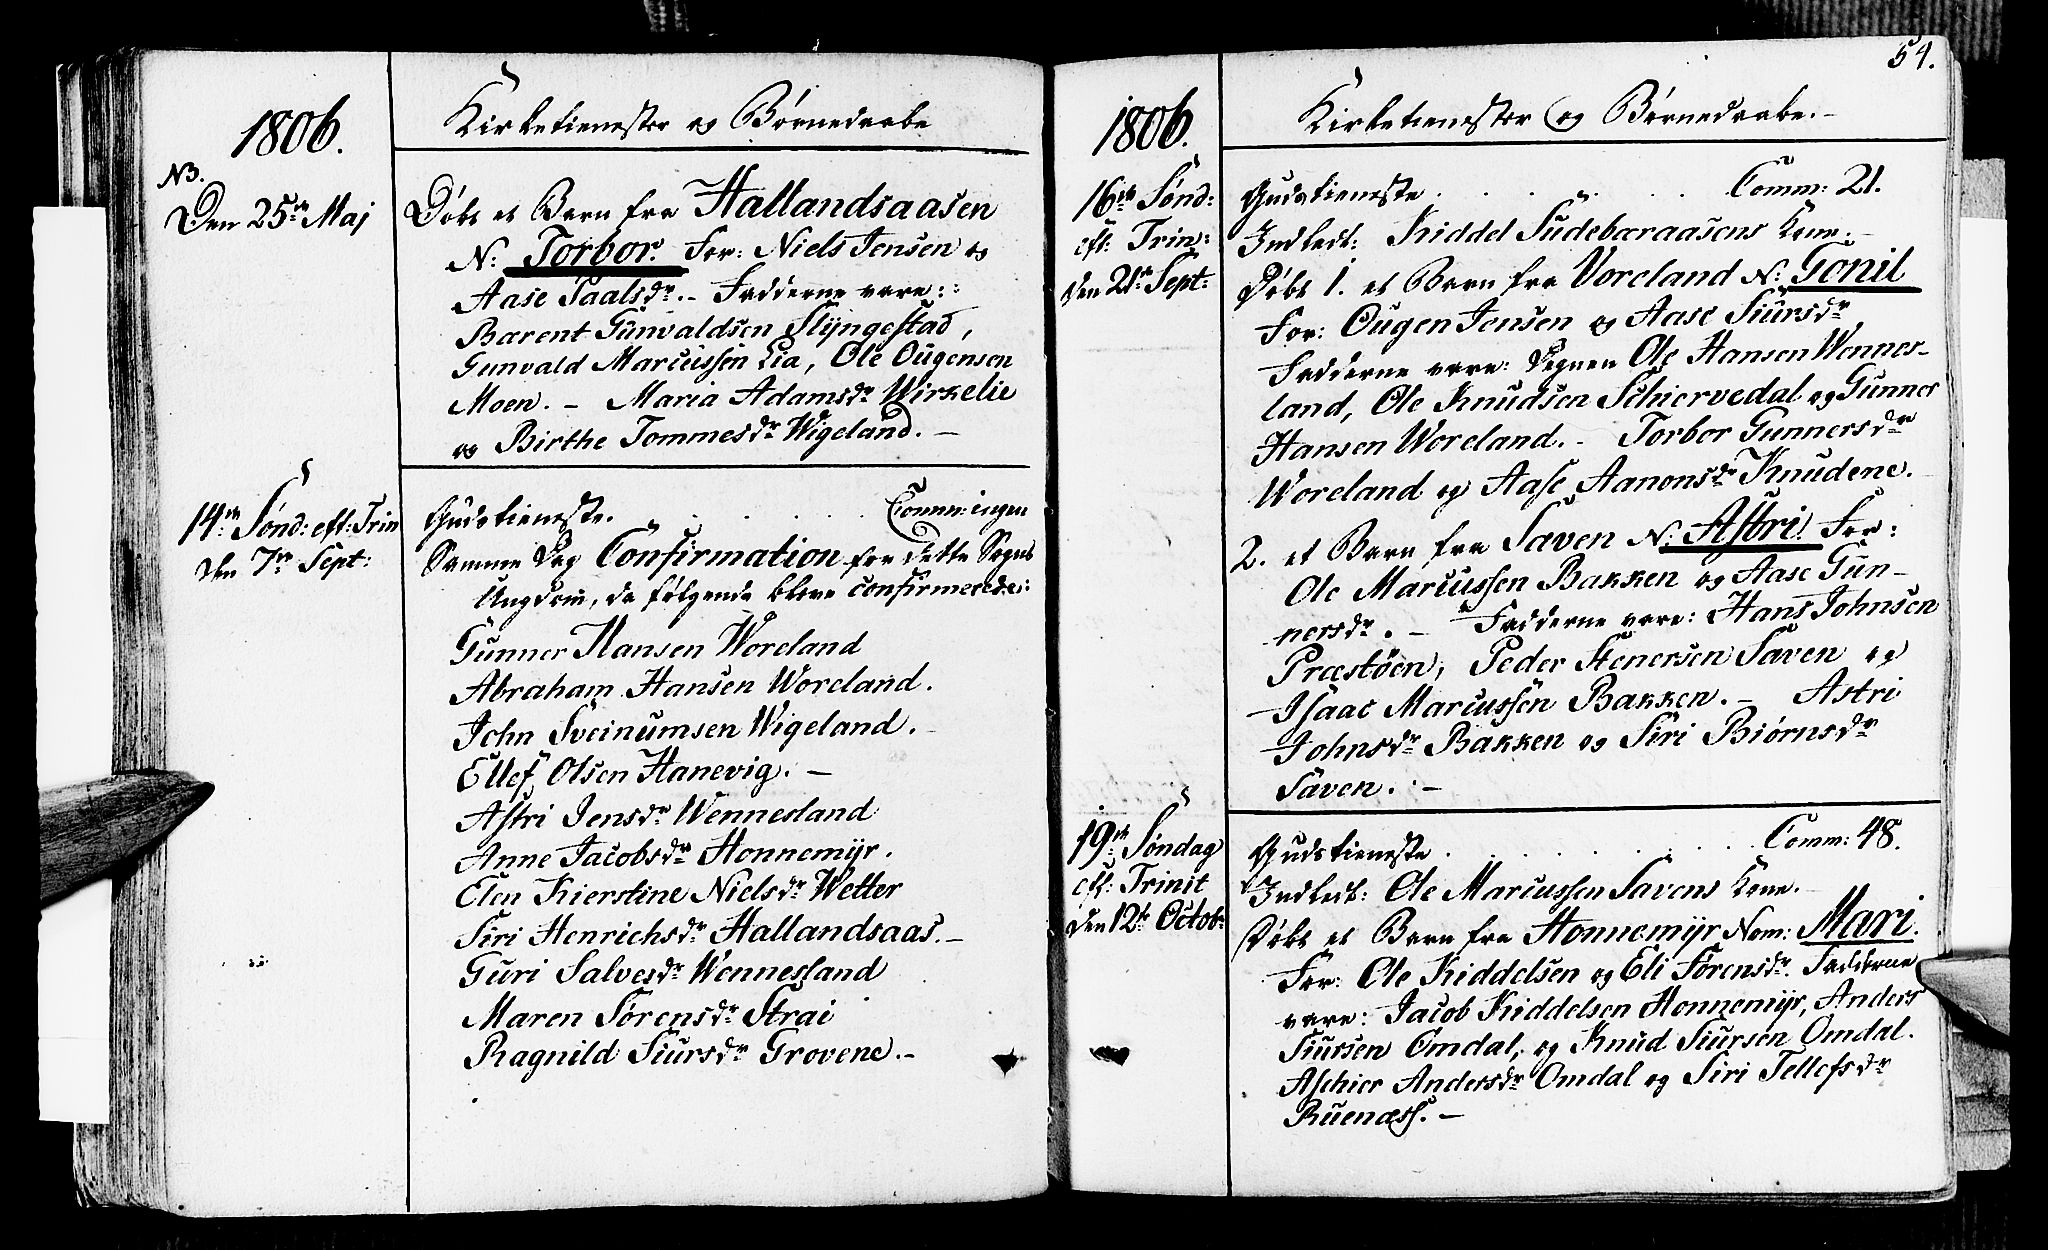 1806.
Kirketienester og Børnedaabe
NB.
Den 25de Maj
Døbt et Barn fra Hallandsaasen
N: Torbor. For: Niels Jensen og
Aase Paalsdr. – Fadderne vare::
Barent Gunvaldsen Slÿngestad,
Gunvald Marcussen Lia, Ole Ougensen
Moen. – Maria Adamsdr Wirkelie
og Birthe Tommesdr Wigeland. –
14de Sønd: eft: Trin
den 7de Sept:
Gudstieneste. . . . . . Comm: ingen
Samme Dag Confirmation for dette Sogns
Ungdom, da følgende bleve confirmerede:
Gunner Hansen Woreland
Abraham Hansen Woreland.
John Sveinumsen Wigeland.
Ellef Olsen Hanevig. –
Astri Jensdr Wennesland
Anne Jacobsdr Honnemÿr.
Elen Kierstine Nielsdr Wetter
Siri Henrichsdr Hallandsaas. –
Guri Salvesdr Wennesland
Maren Sørensdr Strai
Ragnild Siursdr Grovene. –
54.
1806.
Kirketienester og Børnedaabe. –
16de Sønd:
eft: Trin:
den 21de Sept:
Gudstieneste . . . . . . Comm: 21.
Indledt: Kiddel Sudebøraasens Kone. –
Døbt 1. et Barn fra Voreland N: Gonil
For: Ougen Jensen og Aase Siursdr
Fadderne vare: Degnen Ole Hansen Wennes-
land, Ole Knudsen Schiervedal og Gunner
Hansen Woreland. – Torbor Gunnersdr
Woreland og Aase Aanonsdr Knudene.
2. et Barn fra Saven N: Astri. For:
Ole Marcussen Bakken og Aase Gun-
nersdr. – Fadderne vare: Hans Johnsen
Præstøen, Peder Stenersen Saven og
Isaac Marcussen Bakken. – Astri
Johnsdr Bakken og Siri Biørnsdr
Saven. –
19de Søndag
eft: Trinit
den 12te Octob:
Gudstieneste . . . . . . Comm: 48.
Indledt: Ole Marcussen Savens Kone. –
Døbt et Barn fra Honnemÿr Nom: Mari.
For: Ole Kiddelsen og Eli Sørensdr. Fadderne
vare: Jacob Kiddelsen Honnemÿr, Anders
Siursen Omdal, og Knud Siursen Omdal.
Aschier Andersdr Omdal og Siri Tellefsdr
Ruenæss. –